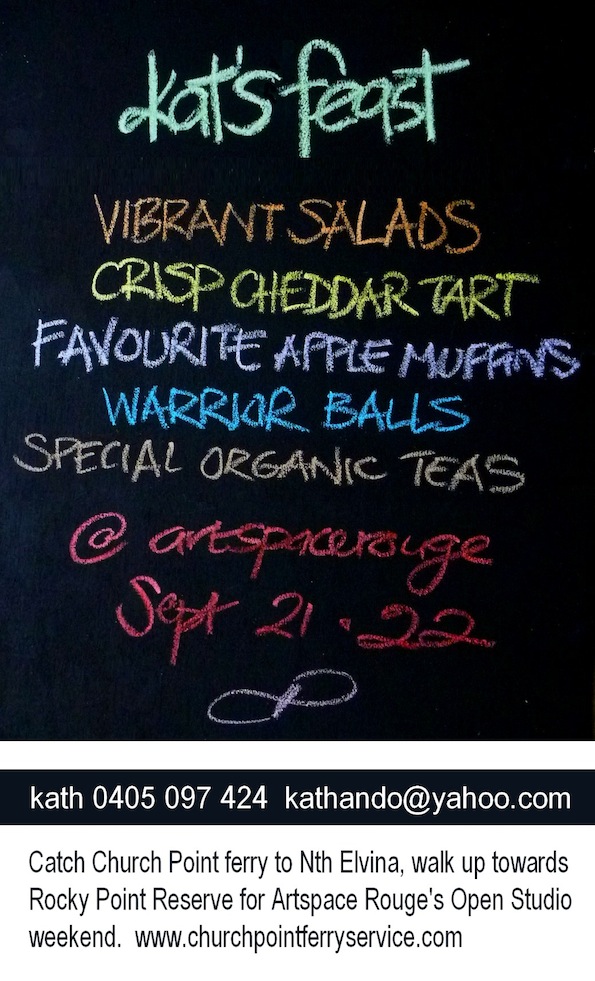 kat's feast
VIBRANT SALADS
CRISP CHEDDAR TART
FAVOURITE APPLE MUFFINS
WARRIOR BALLS
SPECIAL ORGANIC TEAS
@ artspacerouge
Sept 21 · 22
kath 0405 097 424 kathando@yahoo.com
Catch Church Point ferry to Nth Elvina, walk up towards
Rocky Point Reserve for Artspace Rouge's Open Studio
weekend. www.churchpointferryservice.com